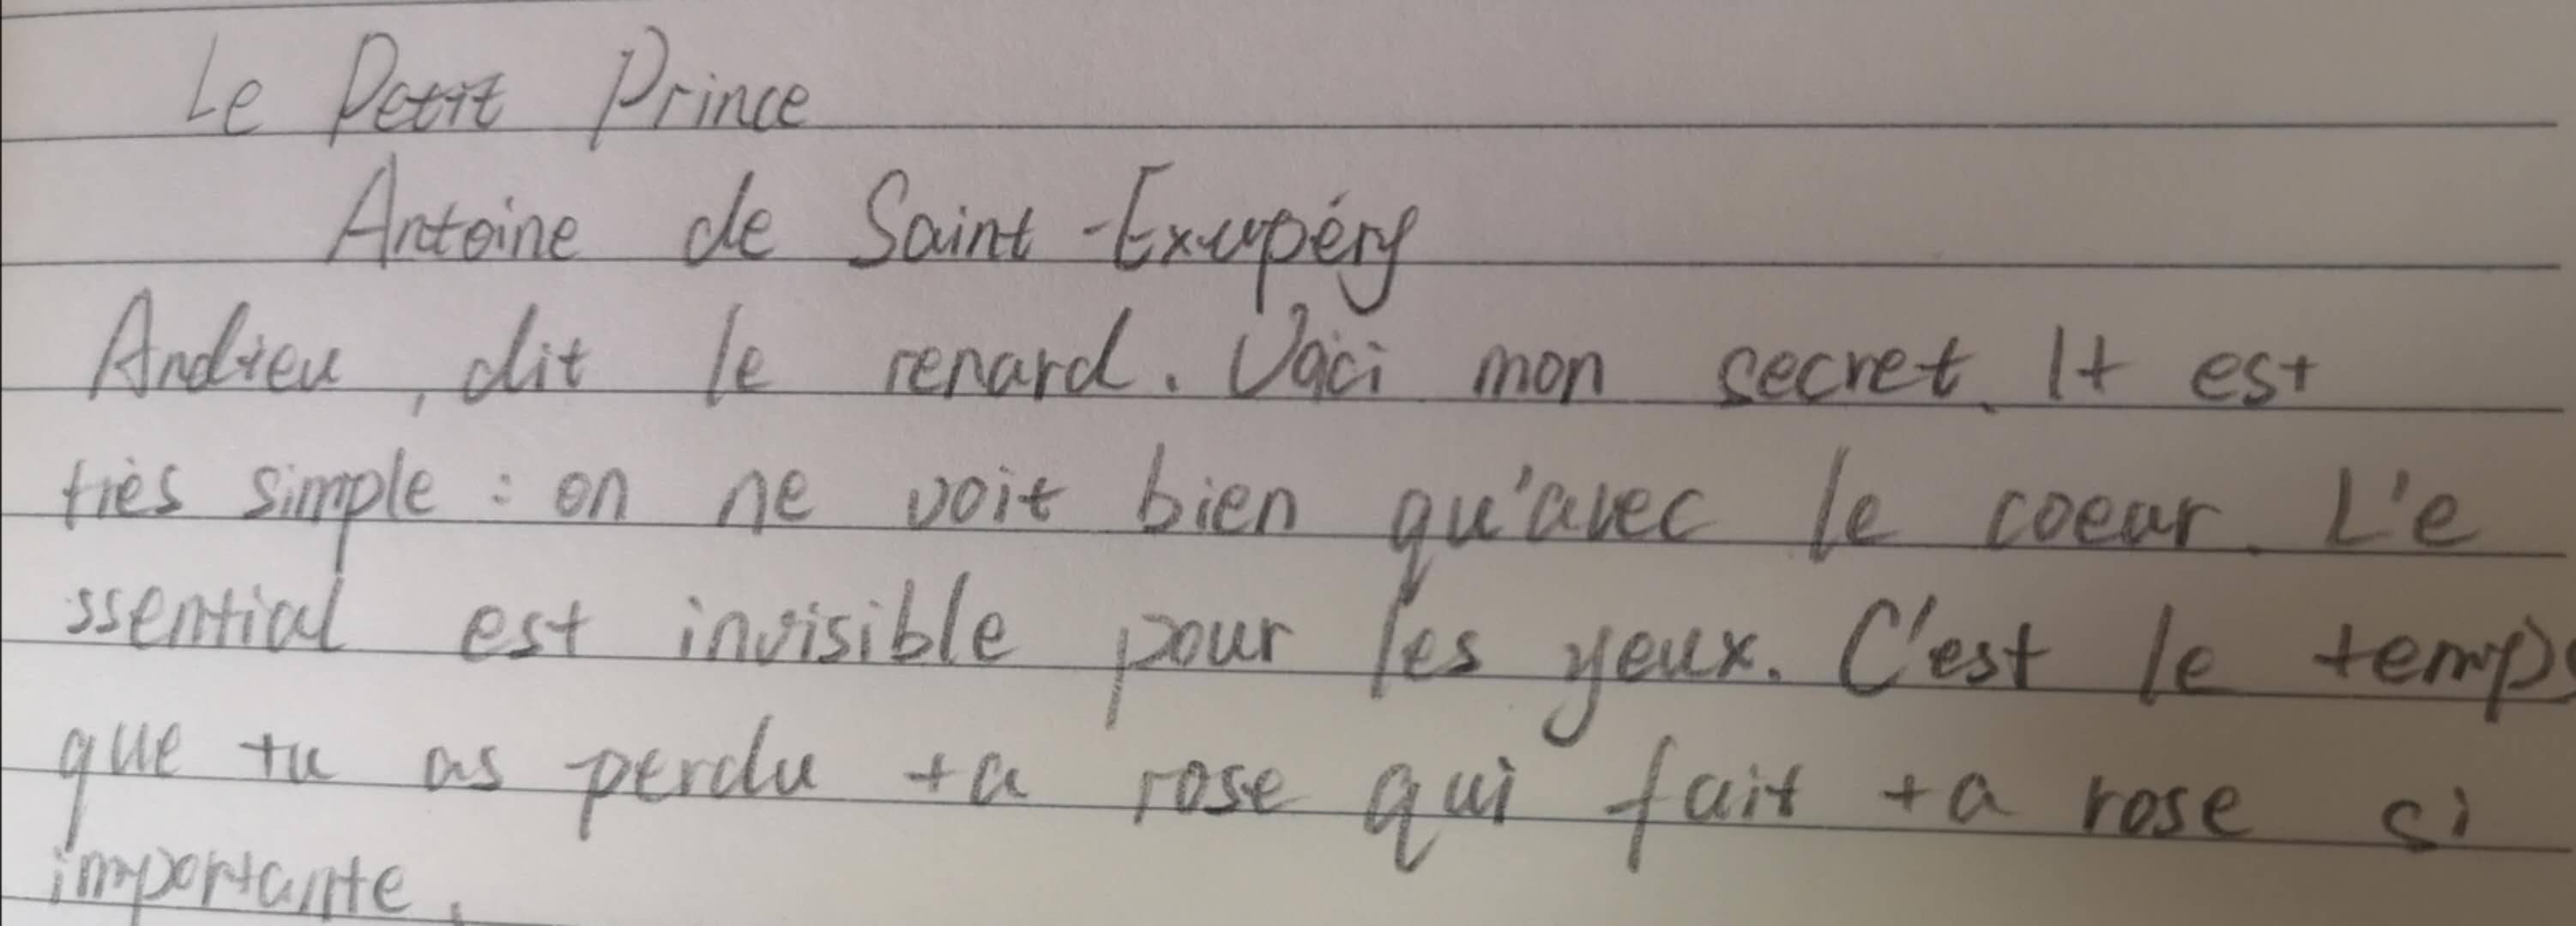 Le Petit Prince
Antoine de Saint-Exupéry
Andieu, dit le renard. Voici mon secret. It est
très simple : on ne voit bien qu'avec le coeur. L'e
ssential est invisible pour les yeux. C'est le temps
que tu as perdu ta rose qui fait ta rose si
importante.